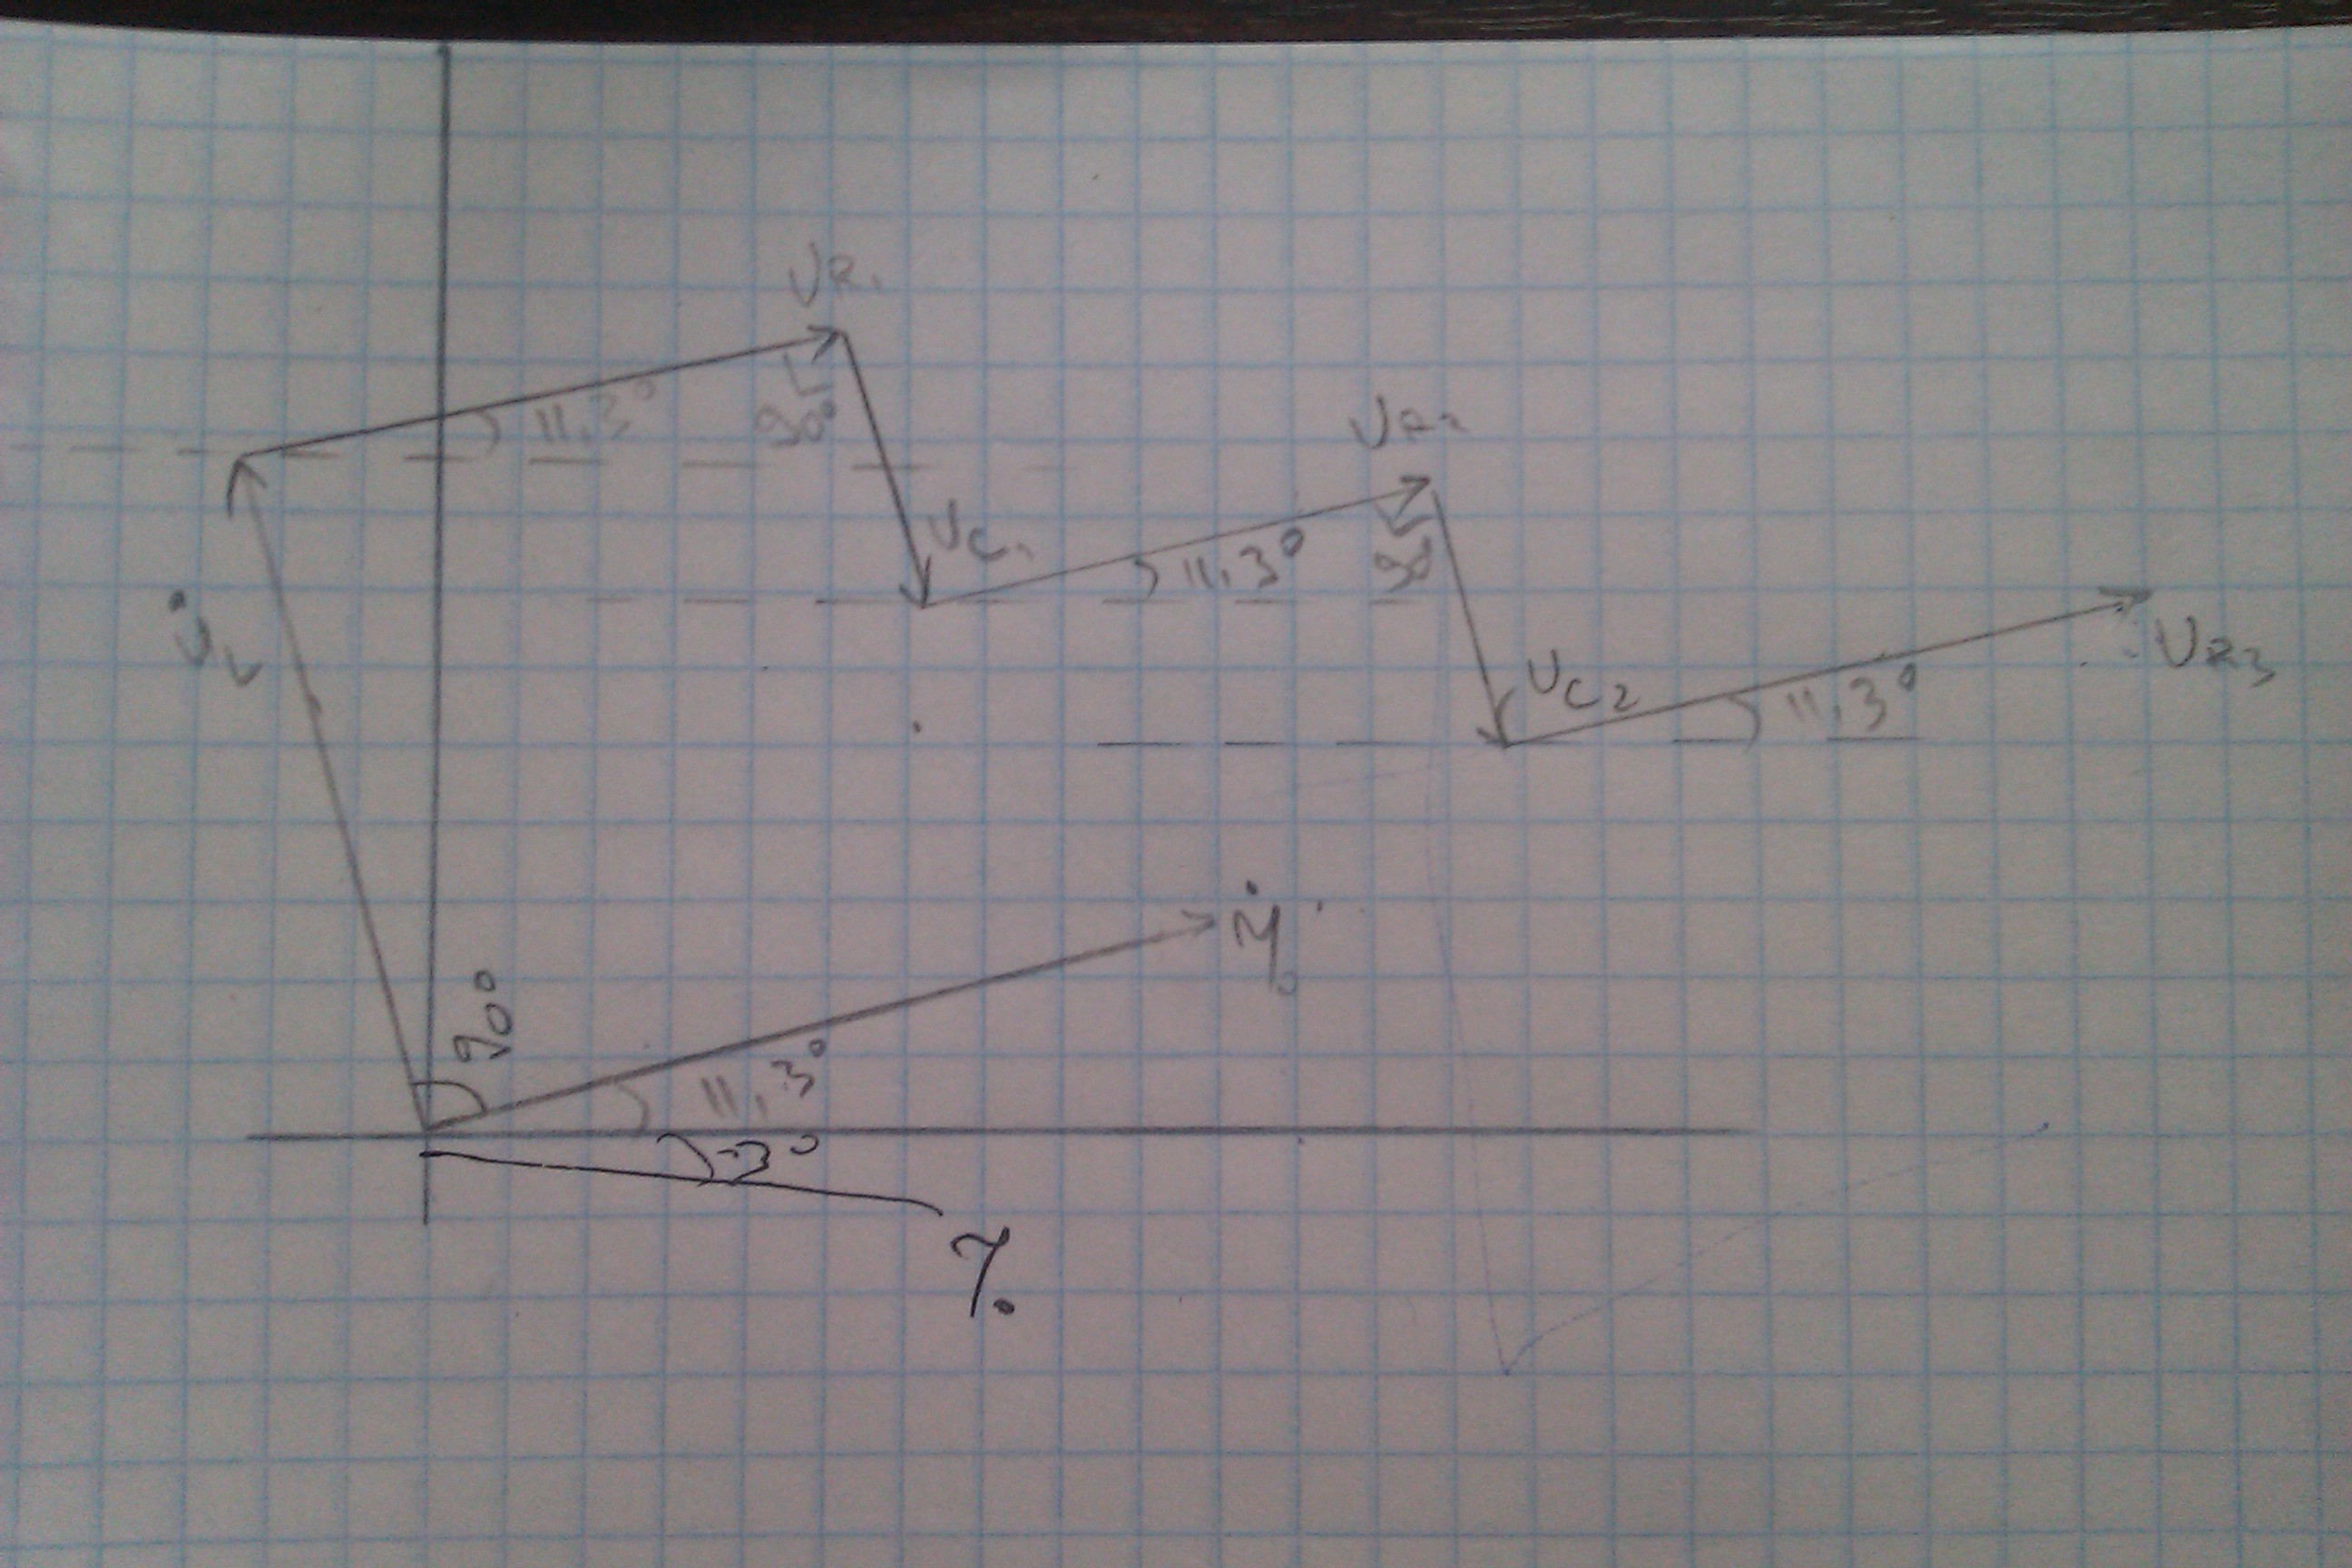 U_R1
11,3°
90°
U_R2
U_C1
11,3°
90°
U̇_L
U_C2
U_R3
11,3°
90°
11,3°
-3°